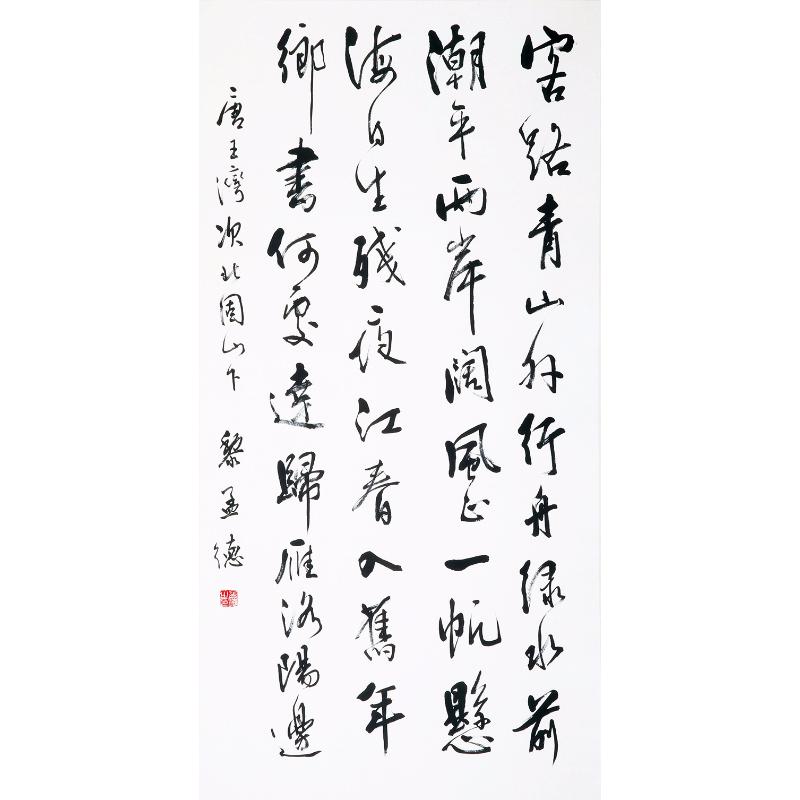 客路青山外行舟綠水前
潮平兩岸闊風正一帆懸
海日生殘夜江春入舊年
鄉書何處達歸雁洛陽邊
唐王灣次北固山下 黎孟德